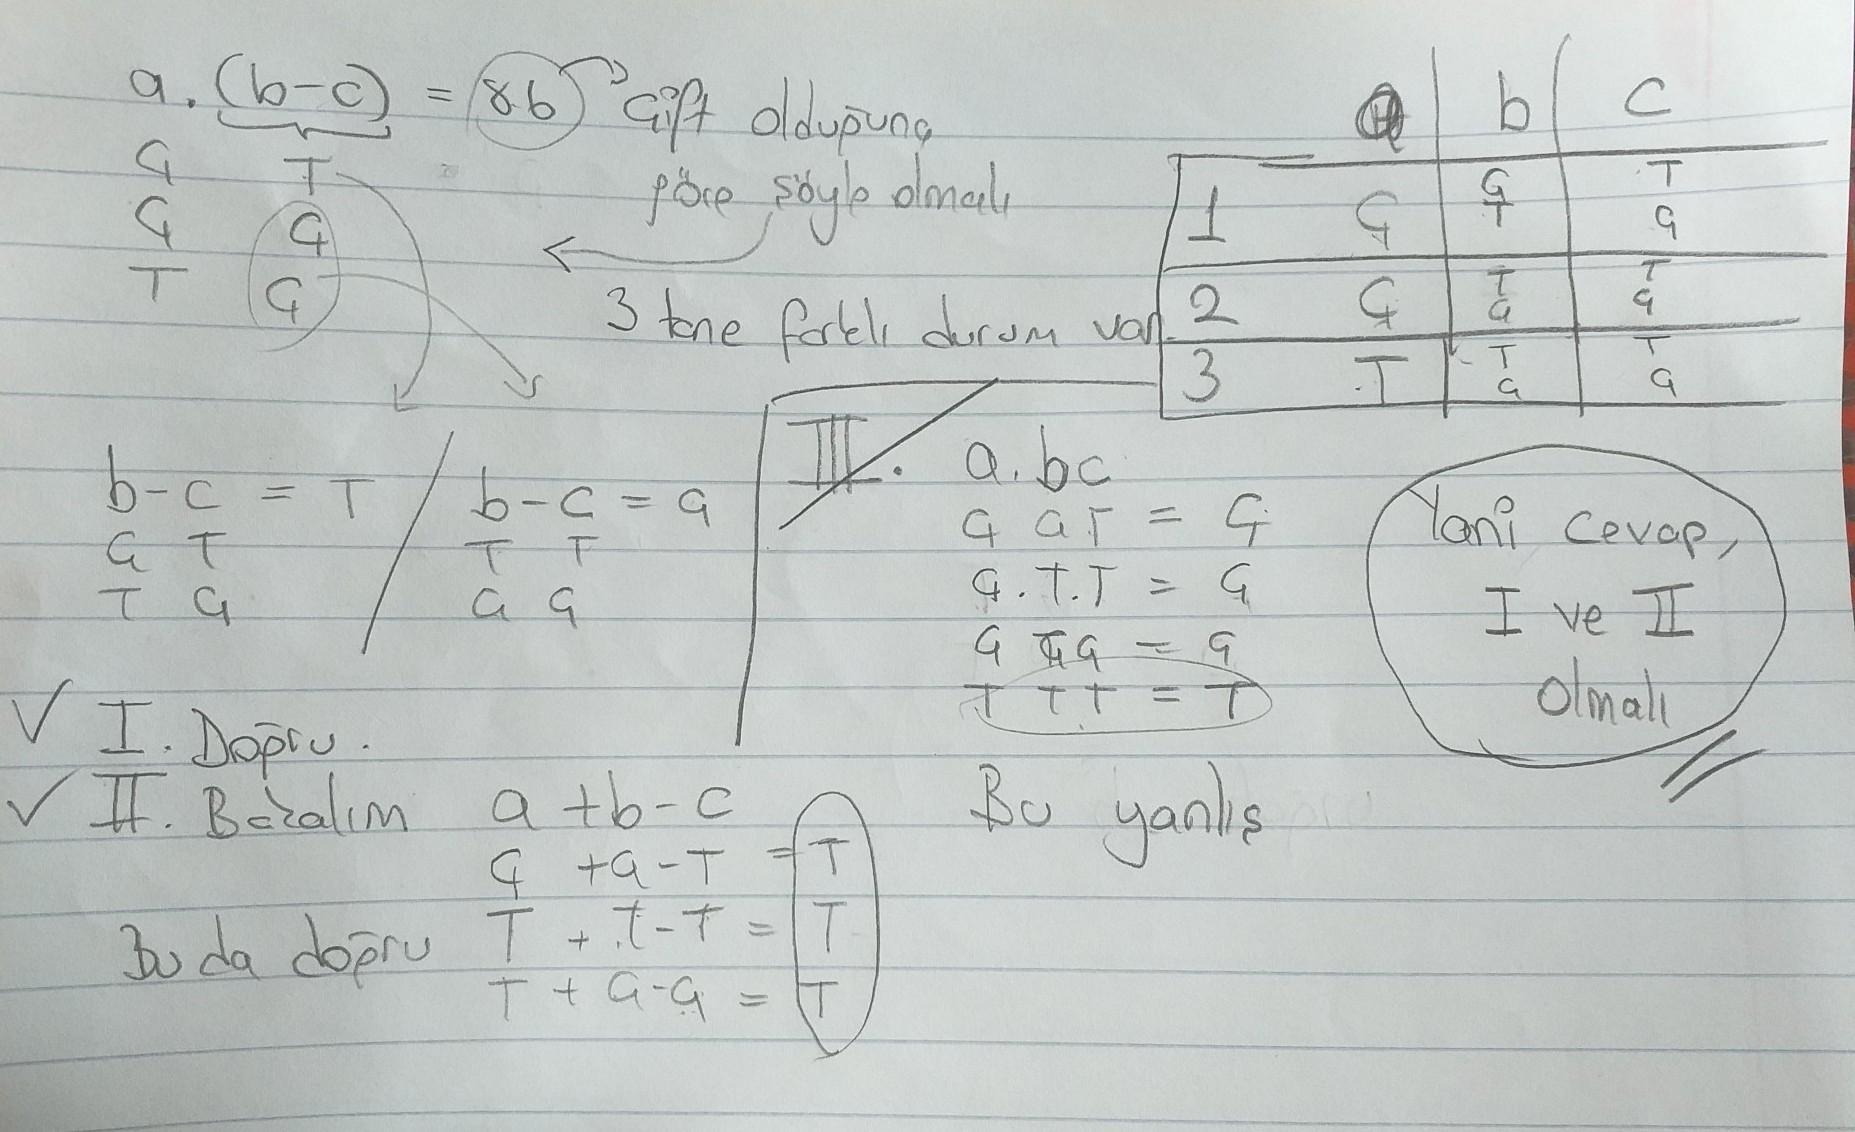 a.(b-c) = 86 Çift olduğuna
göre şöyle olmalı
Ç T
Ç Ç
T Ç
3 tane farklı durum var.
b c
1 Ç Ç T
T Ç
2 Ç T T
Ç Ç
3 T T T
Ç Ç
b-c = T
Ç T
T Ç
b-c = Ç
T T
Ç Ç
III. a.bc
Ç Ç T = Ç
Ç.T.T = Ç
Ç Ç Ç = Ç
T T T = T
Bu yanlış
Yani cevap,
I ve II
Olmalı
✓ I. Doğru.
✓ II. Bakalım a+b-c
Ç +Ç-T = T
Bu da doğru T + T-T = T
T + Ç-Ç = T